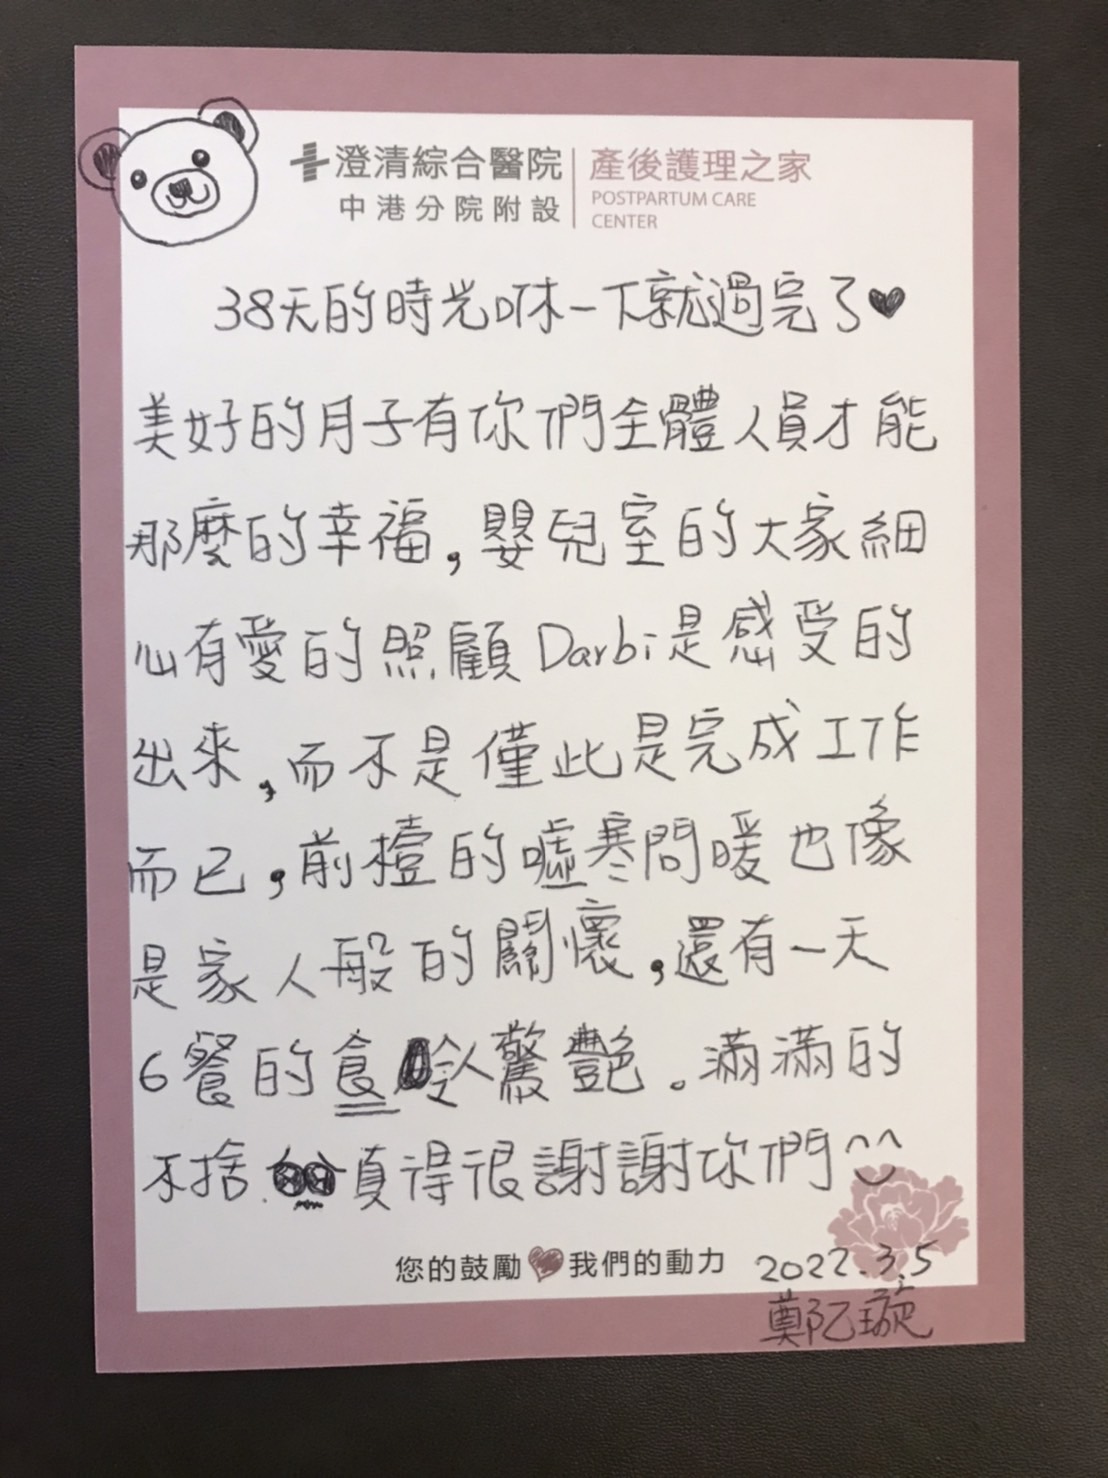 澄清綜合醫院
中港分院附設
產後護理之家
POSTPARTUM CARE
CENTER
38天的時光咻一下就過完了♥
美好的月子有你們全體人員才能
那麼的幸福，嬰兒室的大家細
心有愛的照顧Darbi是感受的
出來，而不是僅此是完成工作
而已，前檯的噓寒問暖也像
是家人般的關懷，還有一天
6餐的食令人驚艷。滿滿的
不捨 真得很謝謝你們
您的鼓勵 我們的動力
2022.3.5
鄭乙璇